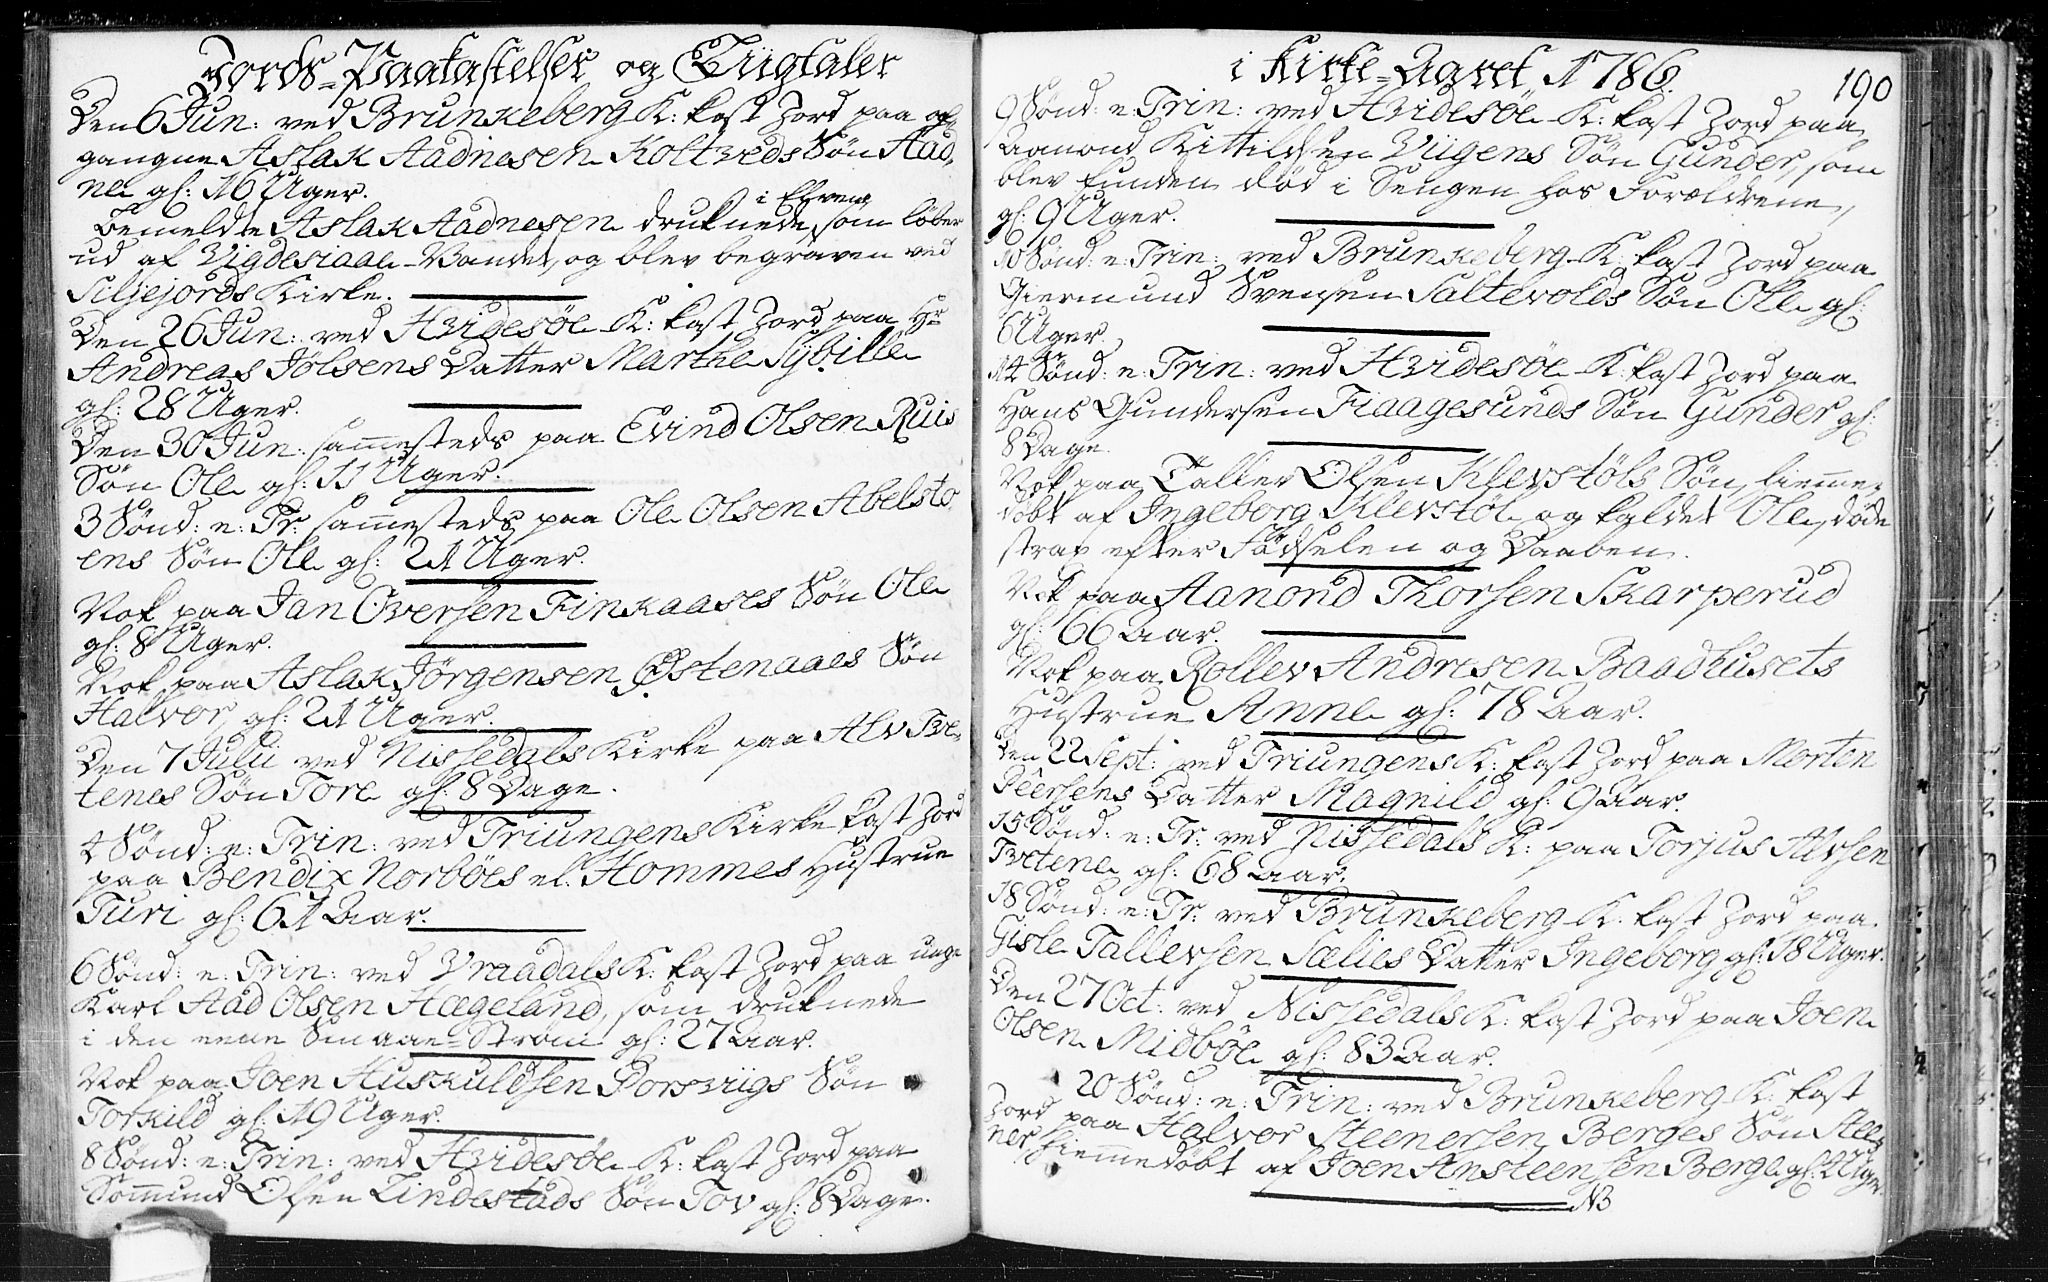 Jords-Paakastelser og Liigtaler
Den 6 Jun: ved Brunkeberg K: kast Jord paa af-
gangne Aslak Aadnesen Koltveds Søn Aad,
ne gl: 16 Uger.
Bemeldte Aslak Aadnesen druknede i Elven som løber
ud af Vigdesiaae-Vandet, og blev begraven ved
Siljejords Kirke.
Den 26 Jun: ved Hvidesøe K: kast Jord paa Hr
Andreas Jølsens Datter Marthe Sybille
gl: 28 Uger.
Den 30 Jun: sammesteds paa Evind Olsen Ruis
Søn Ole gl: 11 Uger.
3 Sønd: e: Tr: sammesteds paa Ole Olsen Abelsto
ens Søn Ole gl: 21 Uger.
Nok paa Jan Oversen Finkaases Søn Ole
gl: 8 Uger.
Nok paa Aslak Jörgensen Østenaaes Søn
Halvor, gl: 21 Uger.
Den 7 Julii ved Nissedals Kirke paa Alv Tve-
tenes Søn Tore gl: 8 Dage.
4 Sønd: e: Trin: ved Triungens Kirke kast Jord
paa Bendix Norböes el. Hommes Hustrue
Turi gl: 61 Aar.
6 Sønd: e: Trin: ved Vraadals K: kast Jord paa unge
Karl Aad Olsen Hægeland, som druknede
i den eene Smaae-Strøm gl: 27 Aar.
Nok paa Joen Huskuldsen Dorsviigs Søn
Torkild gl: 19 Uger.
8 Sønd: e: Trin: ved Hvidesøe K: kast Jord paa
Sommund Olsen Lindestads Søn Tov gl: 8 Dage.
i Kirke-Aaret 1786.
190
9 Sønd: e: Trin: ved Hvidesøe K: kast Jord paa
Aamond Kittilsen Viigens Søn Gunder, som
blev funden død i Sengen hos Forældrene,
gl: 9 Uger.
10 Sønd: e: Trin: ved Brunkeberg K: kast Jord paa
Giermund Svensen Saltevolds Søn Ole gl:
6 Uger.
14 Sønd: e: Trin: ved Hvidesøe K: kast Jord paa
Hans Gundersen Fiaagesunds Søn Gunder gl:
8 Dage.
Nok paa Tallev Olsen Klevstöls Søn, hiemme-
døbt af Ingeborg Klevstöl og kaldet Ole, døde
strax efter Fødselen og Daaben.
Nok paa Aanond Thorsen Skarperud
gl: 66 Aar.
Nok paa Rollev Andresen Baadhusets
Hustrue Anne gl: 78 Aar.
Den 22 Sept: ved Triungens K: kast Jord paa Morten
Peersens Datter Magnild gl: 9 Aar.
15 Sønd: e: Tr: ved Nissedals K: paa Torjus Alvsen
Tvetene gl: 68 Aar.
18 Sønd: e: Tr: ved Brunkeberg K: kast Jord paa
Gisle Tallevsen Sælies Datter Ingeborg gl: 18 Uger.
Den 27 Oct: ved Nissedals K: kast Jord paa Joen
Olsen Midböe gl: 83 Aar.
20 Sønd: e: Trin: ved Brunkeberg K: kast
Jord paa Halvor Steenersen Berges Søn Stee-
ner hiemmedøbt af Joen Ansteensen Berge gl: 2 Uger.
NB